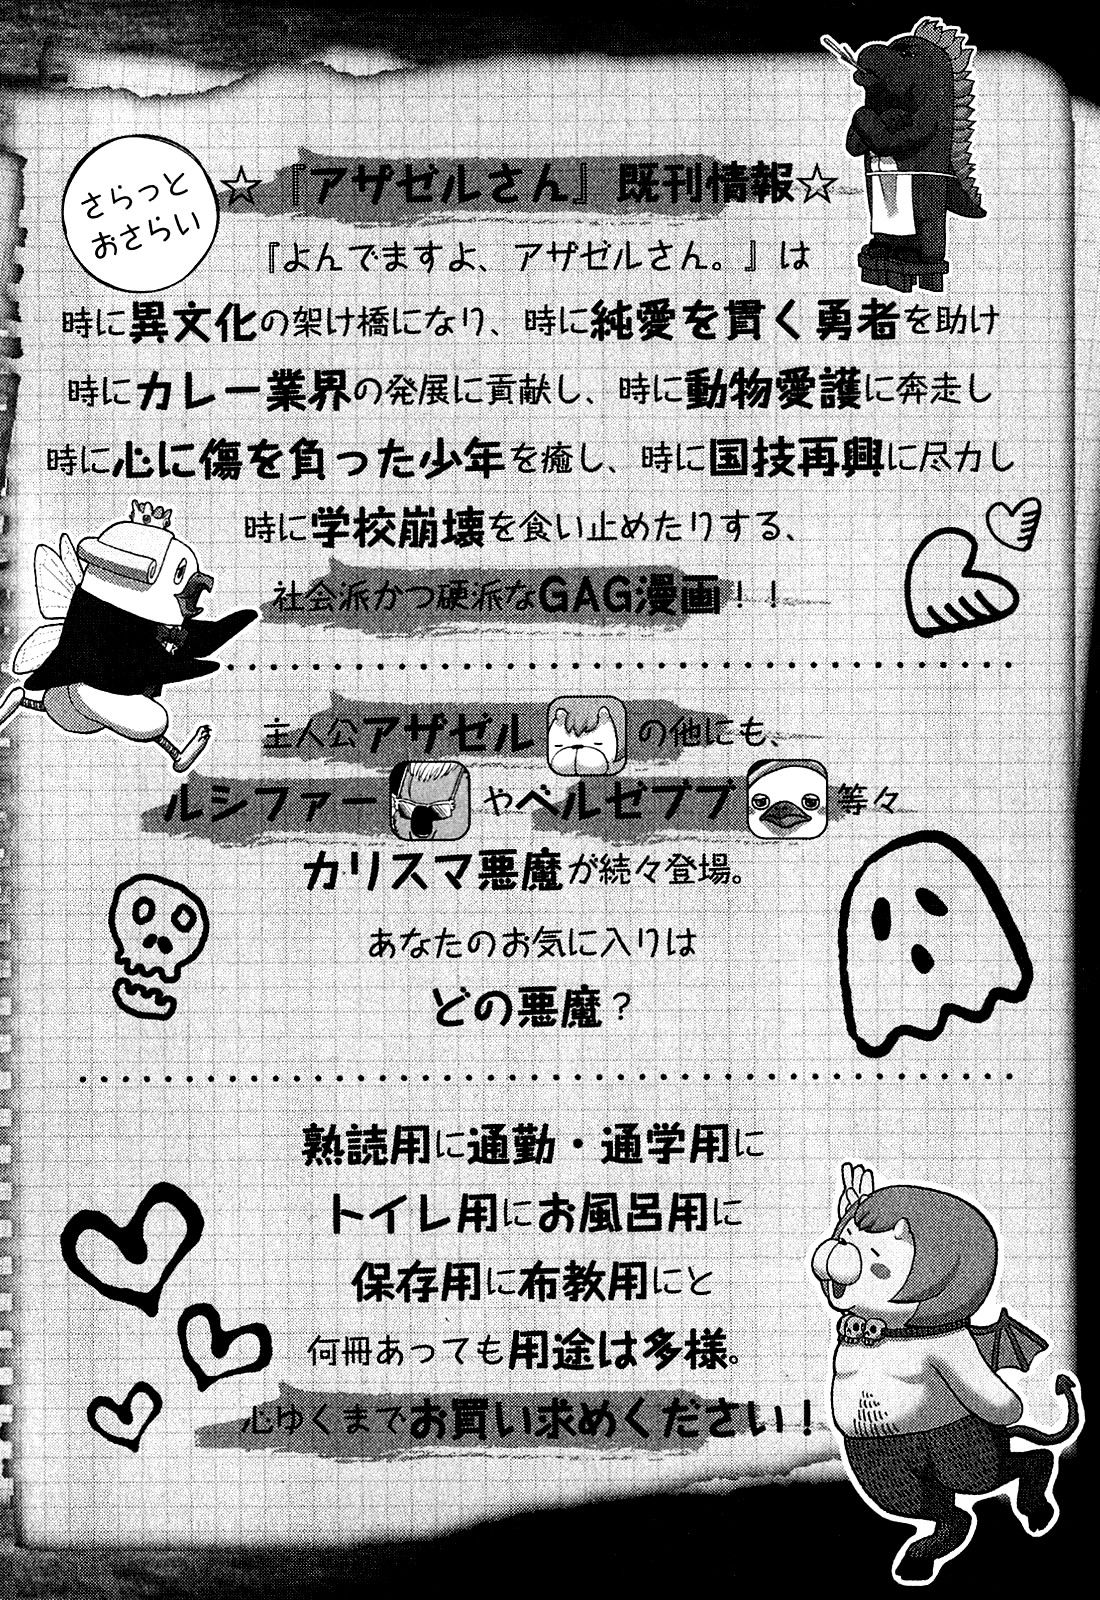 さらっと
おさらい
☆『アザゼルさん』既刊情報☆
『よんでますよ、アザゼルさん。』は
時に異文化の架け橋になり、時に純愛を貫く勇者を助け
時にカレー業界の発展に貢献し、時に動物愛護に奔走し
時に心に傷を負った少年を癒し、時に国技再興に尽力し
時に学校崩壊を食い止めたりする、
社会派かつ硬派なGAG漫画！！
主人公アザゼルの他にも、
ルシファーやベルゼブブ等々
カリスマ悪魔が続々登場。
あなたのお気に入りは
どの悪魔？
熟読用に通勤・通学用に
トイレ用にお風呂用に
保存用に布教用にと
何冊あっても用途は多様。
心ゆくまでお買い求めください！